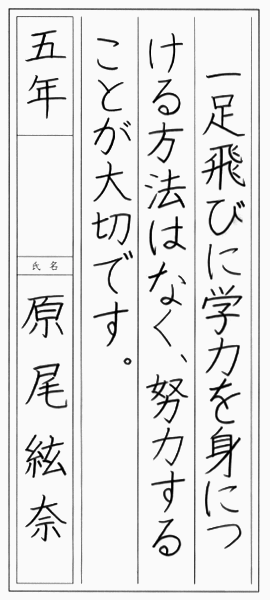 一足飛びに学力を身につ
ける方法はなく、努力する
ことが大切です。
五年
氏名
原尾絃奈